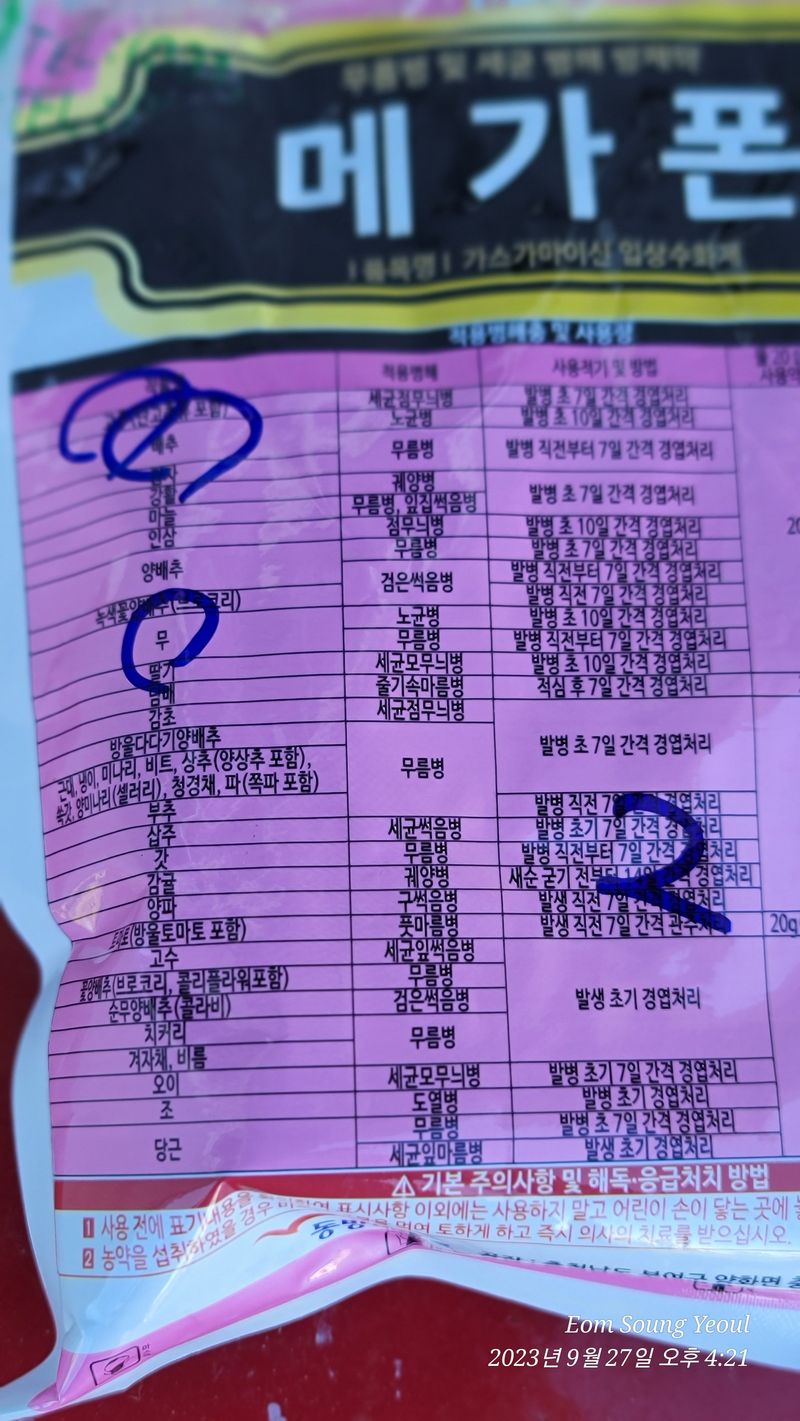 무름병 및 세균 병해 방제약
메가폰
|품목명| 가스가마이신 입상수화제
적용병해충 및 사용량
적용병해 사용적기 및 방법 물 20
세균점무늬병 발병 초 7일 간격 경엽처리
포함) 노균병 발병 초 10일 간격 경엽처리
배추 무름병 발병 직전부터 7일 간격 경엽처리
궤양병 발병 초 7일 간격 경엽처리
강활 무름병, 잎집썩음병
마늘
인삼 점무늬병 발병 초 10일 간격 경엽처리
무름병 발병 초 7일 간격 경엽처리
양배추 검은썩음병 발병 직전부터 7일 간격 경엽처리
녹색꽃양배추(브로코리) 발병 직전 7일 간격 경엽처리
노균병 발병 초 10일 간격 경엽처리
무 무름병 발병 직전부터 7일 간격 경엽처리
딸기 세균모무늬병 발병 초 10일 간격 경엽처리
담배 줄기속마름병 적심 후 7일 간격 경엽처리
감초 세균점무늬병
방울다다기양배추 발병 초 7일 간격 경엽처리
근대, 냉이, 미나리, 비트, 상추(양상추 포함), 무름병
쑥갓, 양미나리(셀러리), 청경채, 파(쪽파 포함)
부추 발병 직전 7일 간격 경엽처리
삽주 세균썩음병 발병 초기 7일 간격 경엽처리
갓 무름병 발병 직전부터 7일 간격 경엽처리
감귤 궤양병 새순 굳기 전부터 14일 간격 경엽처리
양파 구썩음병 발생 직전 7일 간격 경엽처리
토마토(방울토마토 포함) 풋마름병 발생 직전 7일 간격 관주처리 20g
고수 세균잎썩음병
꽃양배추(브로코리, 콜리플라워포함) 무름병 발생 초기 경엽처리
순무양배추(콜라비) 검은썩음병
치커리 무름병
겨자채, 비름
오이 세균모무늬병 발병 초기 7일 간격 경엽처리
조 도열병 발병 초기 경엽처리
당근 무름병 발병 초 7일 간격 경엽처리
세균잎마름병 발생 초기 경엽처리
2
⚠ 기본 주의사항 및 해독·응급처치 방법
1 사용 전에 표기내용을 표시사항 이외에는 사용하지 말고 어린이 손이 닿는 곳에
2 농약을 섭취하였을 경우 토하게 하고 즉시 의사의 치료를 받으십시오.
Eom Soung Yeoul
2023년 9월 27일 오후 4:21